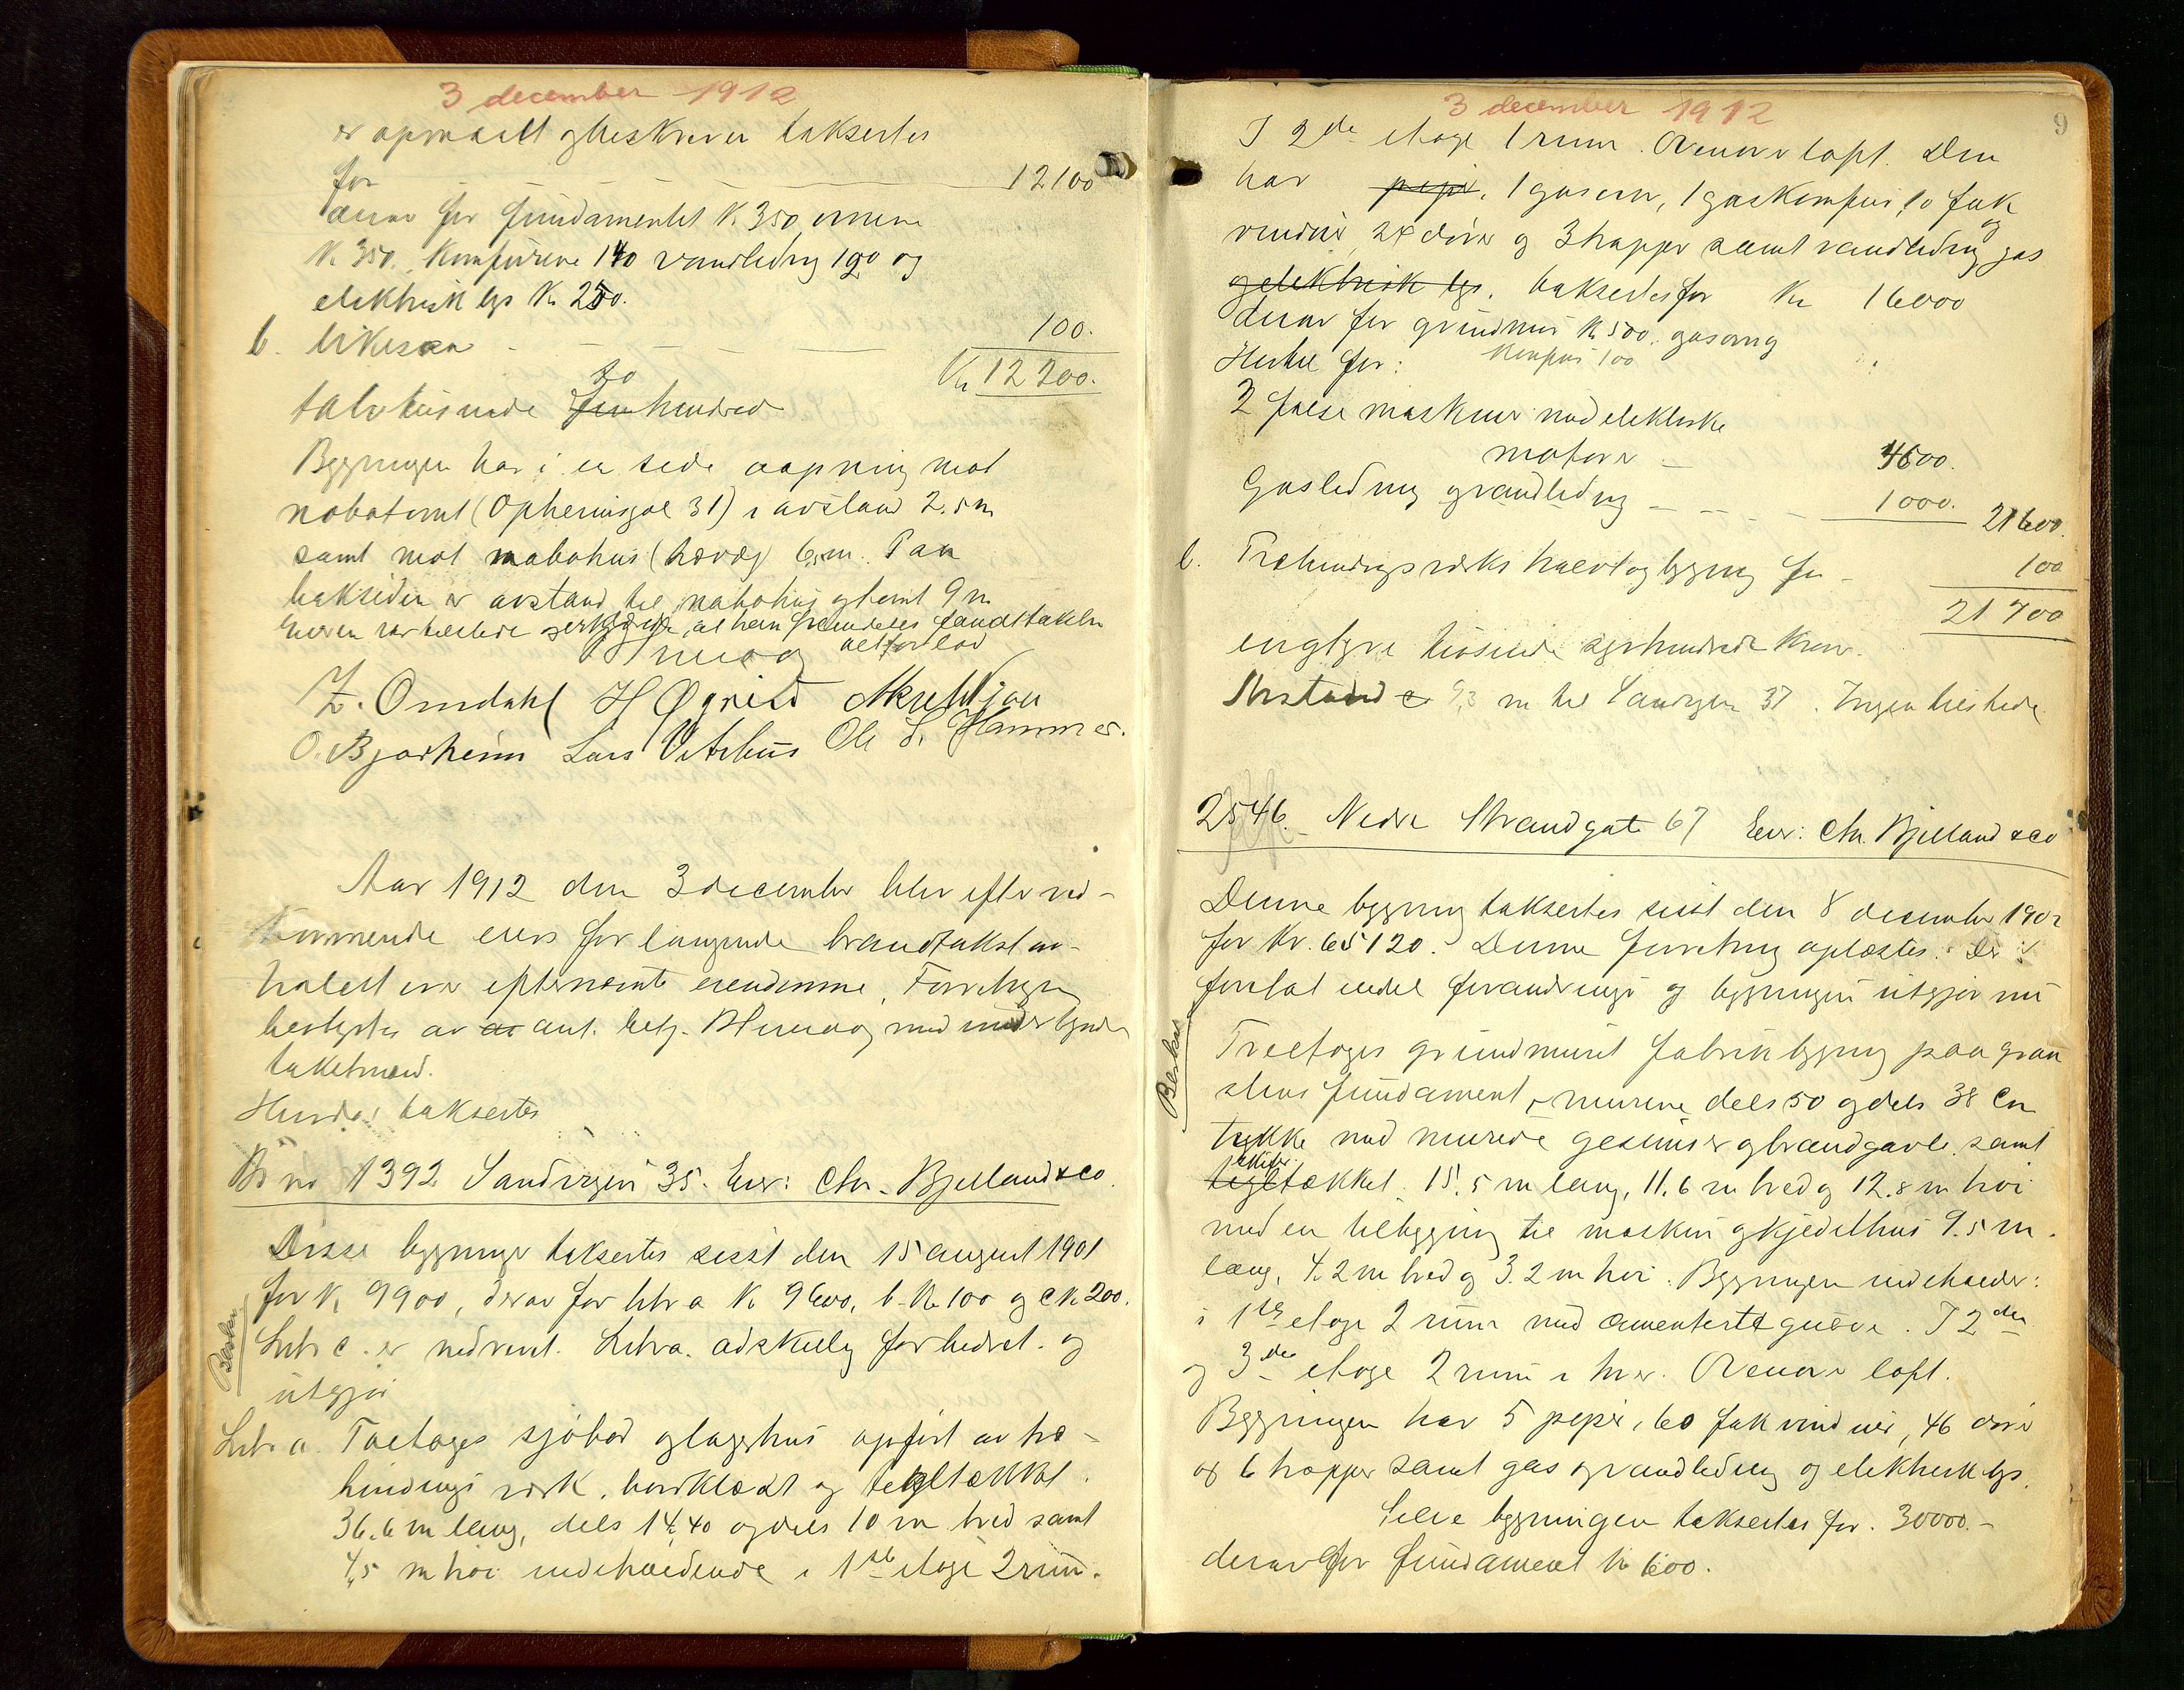 3 december 1912
er opmaalt og beskreven taksertes
for — — — 12100
derav for fundamentet K. 350, ovnene
K 350. Komfurene 140 vandledning 120 og
elektrisk lys K. 250.
b. likesaa - — — 100.
Kr 12200.
to
tolv tusinde fem hundred
Bygningen har i en side aapning mot
nabotomt (Opheimsgt 31) i avstand 2.5 m
samt mot nabohus 6,5 m. Paa
baksiden er avstand til nabohus og tomt 9 m
Eieren var tilstede at han fremdeles
Z. Omdahl H Øgreid
O. Bjorheim Lars Vetrhus Ole S. Hammer.
Aar 1912 den 3 december blev efter ved-
kommende eiers forlangende brandtakst av-
holdt over efternævnte eiendomme. Forretningen
bestyrtes av av aut. betj. med undertegnede
takstmænd.
Herunder taksertes
Br no 1392 Sandvigen 35. Eier: Chr. Bjelland & Co.
Disse bygninger taksertes sisst den 15 august 1901
for K. 9900, derav for litr a K. 9600, b. Kr 100 og c K. 200.
Beskr
Litr c. er nedrevet. Litra. adskillig forbedret. og
utgjør
Litr a. Toetages sjøbod og lagerhus opført av træ-
bindings verk, bordklædt og tegltækket.
36.6 m lang, dels 14,40 og dels 10 m bred samt
4,5 m høi indeholdende i 1ste etage 2 rum.
3 december 1912
9
I 2den etage 1 rum. Ovenover loft. Den
har piper, 1 gasovn, 1 gaskomfur, 10 fak
vinduer, 24 dører og 3 trapper samt vandledning og gas
og elektrisk lys. taksertes for Kr 16000
derav for grundmur K 500. gasovn
Komfur 100
Hertil for:
2 false maskiner med elektriske
motorer — 4600.
Gasledning og vandledning — — 1000. 21600.
b. Træbindingsverks tilbygning for — 100
21700
en og tyve tusinde syvhundrede kroner.
Avstand 9,3 m til Sandvigen 37. Ingen tilstede
2546. Nedre Strandgate 67 Eier: Chr. Bjelland & Co
Denne bygning taksertes sisst den 8 december 1902
for Kr. 65120. Denne forretning oplæstes. Der er
foretat endel forandringer og bygningen utgjør nu
Beskr
Treetages grundmuret fabrikbygning paa graa
stens fundament, murene dels 50 og dels 38 Cm
tykke med murede gesimser og brandgavle samt
skifer
tegltækket. 15.5 m lang, 11.6 m bred og 12.8 m høi
med en tilbygning til maskin og kjedelhus 9.5 m.
lang, 4.2 m bred og 3.2 m høi. Bygningen indeholder:
i 1ste etage 2 rum med cementerte gulve. I 2den
og 3de etage 2 rum i hver. Ovenover loft.
Bygningen har 5 piper, 60 fak vinduer, 46 dører
og 6 trapper samt gas og vandledning og elektrisk lys.
Selve bygningen taksertes for. 30000.-
derav for fundament Kr 600.